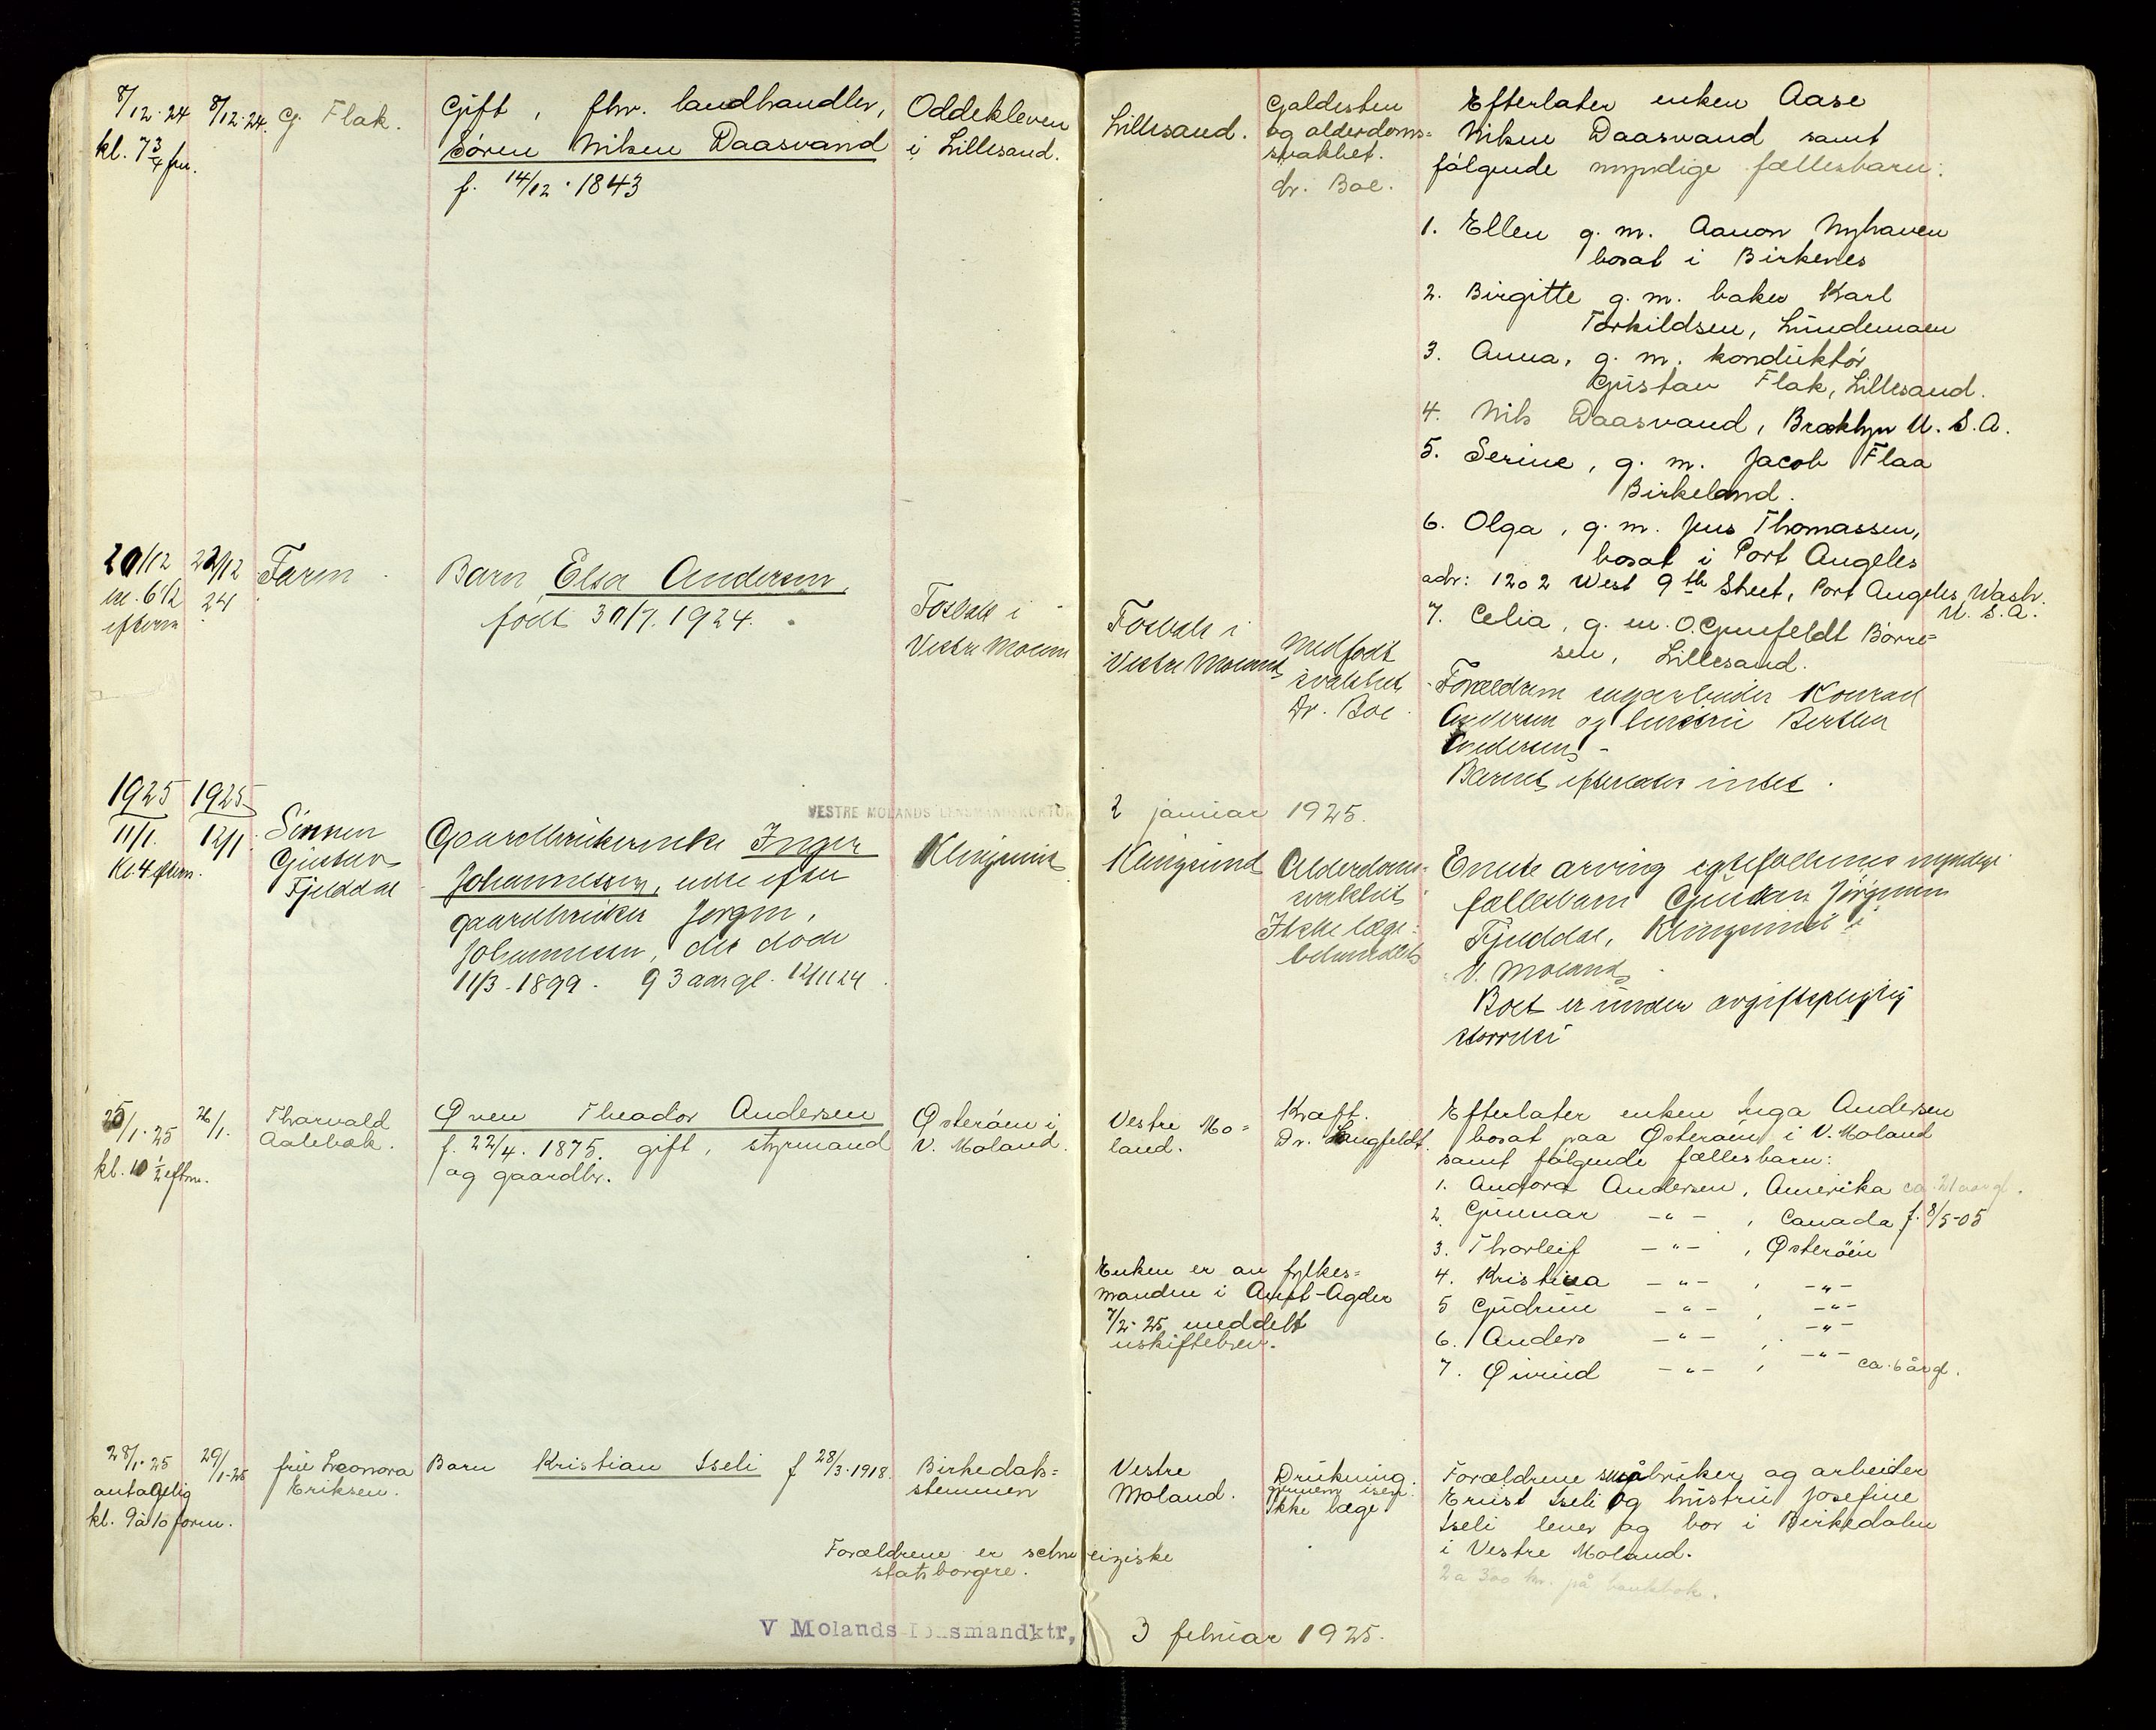 8/12·24
kl. 7 3/4 fm.
8/12·24.
G. Flak.
Gift, fhv. landhandler,
Søren Nilsen Daasvand
f. 14/12·1843
Oddekleven
i Lillesand.
Lillesand.
Galdesten
og alderdoms=
svakhet.
dr. Boe.
Efterlater enken Aase
Nilsen Daasvand samt
følgende myndige fællesbarn:
1. Ellen g. m. Aanon Nyhaven
bosat i Birkenes
2. Birgitte g. m. baker Karl
Torkildsen, Lundemoen
3. Anna, g. m. konduktør
Gustav Flak, Lillesand.
4. Nils Daasvand, Brooklyn U.S.A.
5. Serine, g. m. Jacob Flaa
Birkeland.
6. Olga, g. m. Jens Thomassen,
bosat i Port Angeles
adr: 1202 West 9th Street, Port Angeles, Wash.
U.S.A.
7. Celia, g. m. O. Grunfeldt Børre=
sen, Lillesand.
20/12
kl. 6 1/2
efterm
22/12
24
Faren
Barn Elsa Andersen,
født 30/7.1924.
Fosbæk i
Vestre Moland
Fosbæk i
Vestre Moland
Medfødt
svakhet
Dr. Boe
Forældrene
Konrad
Andersen og hustru Berthea
Andersen
Barnet efterlater intet.
VESTRE MOLANDS LENSMANDSKONTOR
2 januar 1925.
1925
11/1.
Kl. 4 efterm.
1925
12/1.
Sønnen
Gustav
Fjelddal
Gaardbrukerenke Inger
Johannessen, enke efter
gaardbruker Jørgen
Johannessen, der døde
11/3-1899. 93 aar gl. 12/11 24
Klingsund
Klingsund
Alderdoms=
svakhet
Ikke læge=
behandlet
Eneste arving egtefællernes myndige
fællesbarn Gustav Jørgensen
Fjelddal, Klingsund i
V. Moland
Boet er under avgiftspligtig
størrelse
25/1·25
kl. 10 1/2 eftm.
26/1.
Thorvald
Aalebæk.
Øven Theodor Andersen
f. 22/4. 1875. gift, styrmand
og gaardbr.
Østerøen i
V. Moland.
Vestre Mo=
land.
Kræft.
Dr. Langfeldt.
Efterlater enken Inga Andersen
bosat paa Østerøen i V. Moland
samt følgende fællesbarn:
1. Andora Andersen, Amerika ca. 21 aar gl.
2. Gunnar -"-, Canada f. 8/5-05
3. Thorleif -"-, Østerøen
4. Kristina -"-, -"-
5 Gudrun -"-, -"-
6. Anders -"-, -"-
7. Øivind -"-, -"- ca. 6 år gl.
Enken er av fylkes=
manden i Aust-Agder
7/2-25 meddelt
uskiftebrev.
28/1·25
antagelig
kl. 9 à 10 form.
29/1-25
fru Leonora
Eriksen.
Barn Kristian Iseli f 28/3·1918.
Birkedals=
stemmen
Vestre
Moland.
Drukning.
gjennem isen.
Ikke læge
Forældrene småbruker og arbeider
Ernst Iseli og hustru Josefine
Iseli lever og bor i Birkedalen
i Vestre Moland.
2 a 300 kr. på bankbok.
Forældrene er schweiziske
statsborgere.
V Molands Lensmandktr,
3 februar 1925.